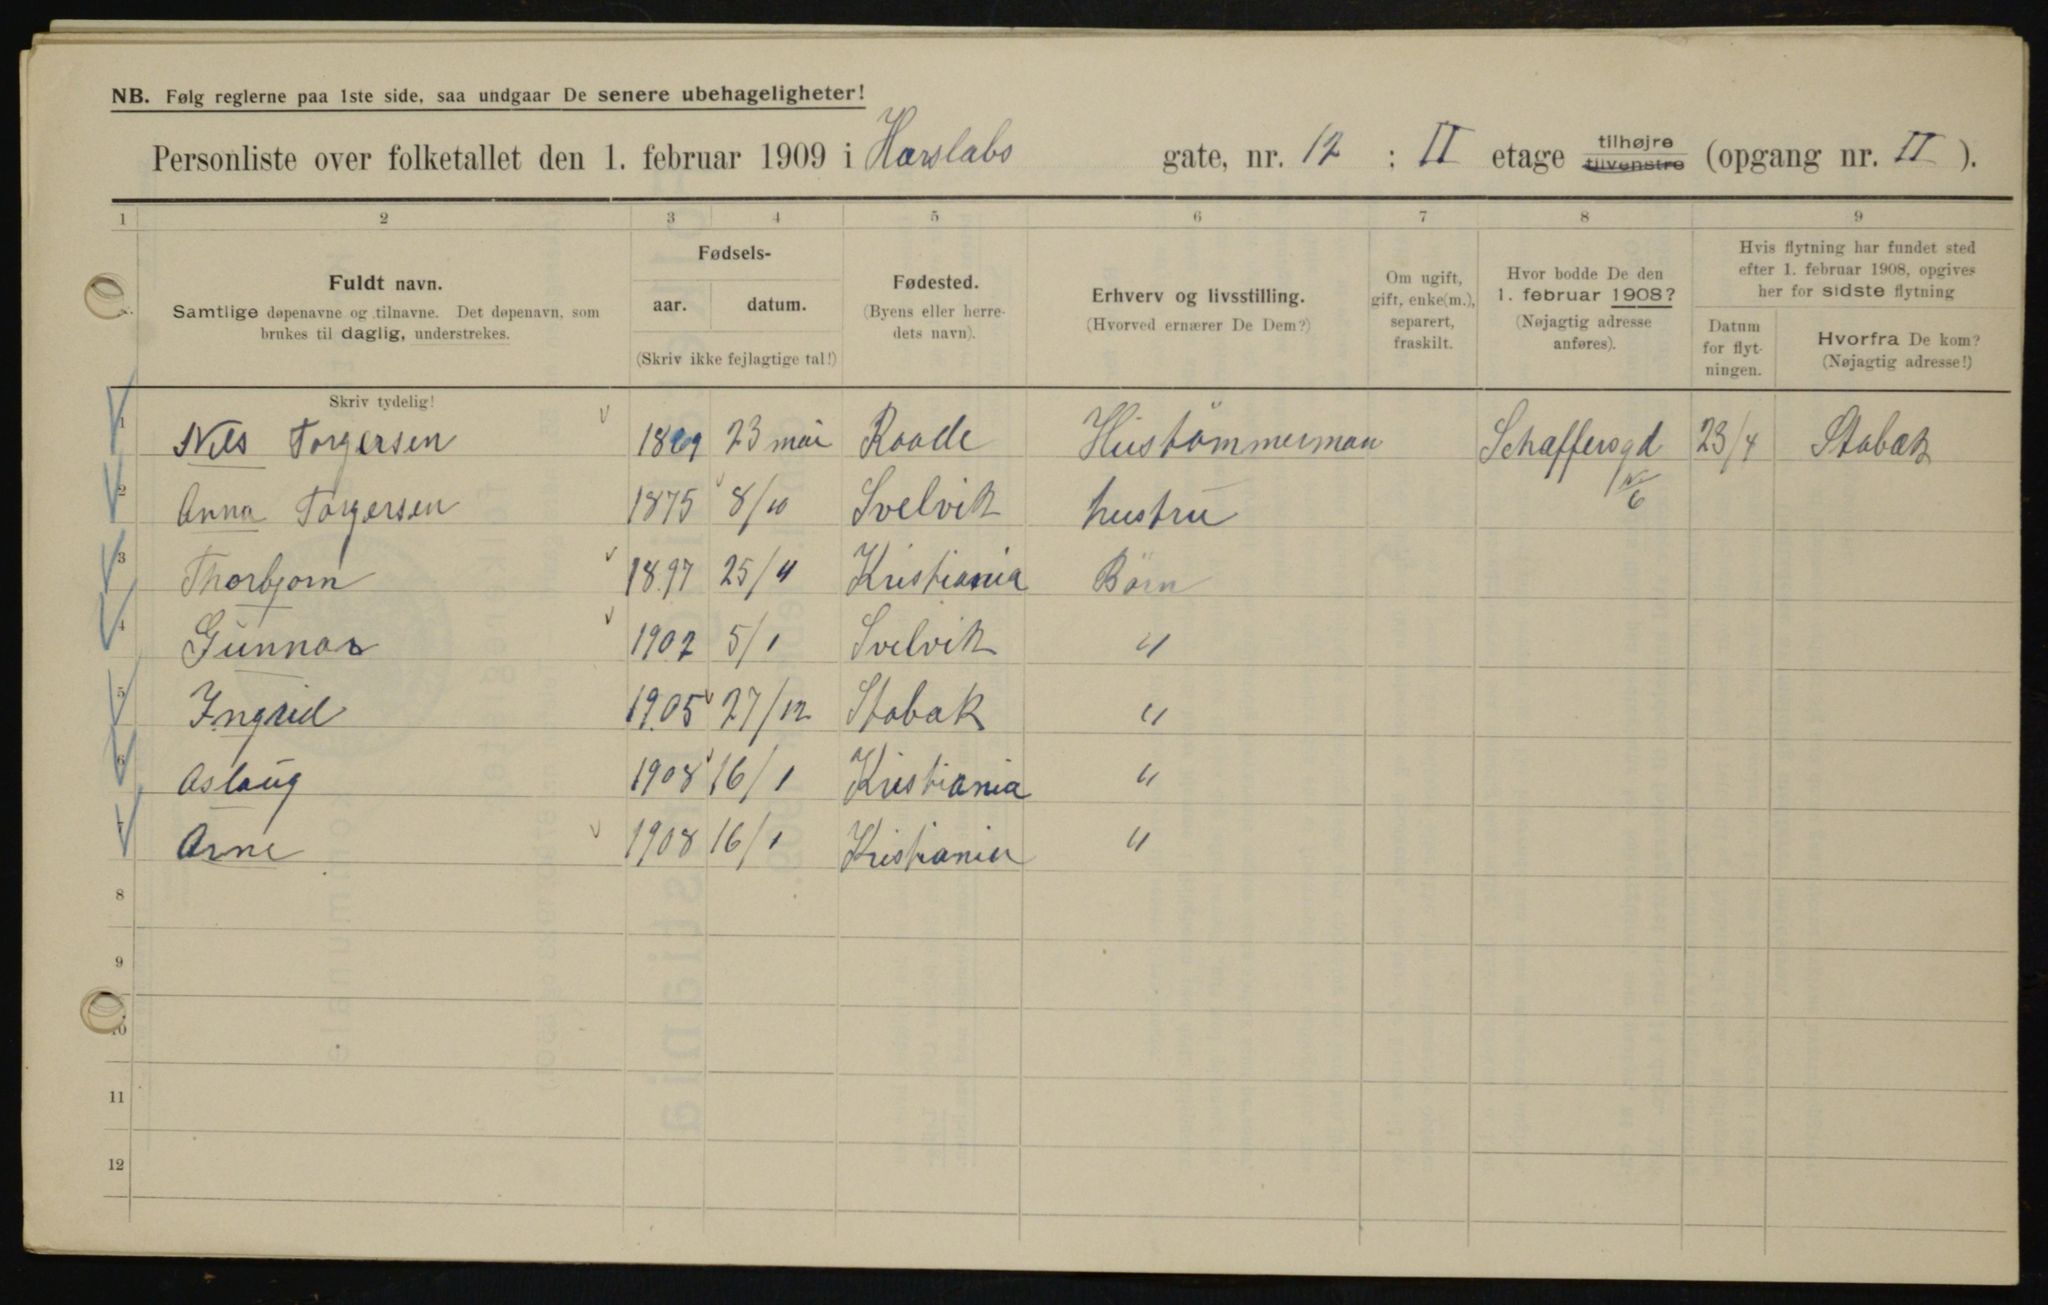 NB. Følg reglerne paa 1ste side, saa undgaar De senere ubehageligheter!
Personliste over folketallet den 1. februar 1909 i Hærslabs gate, nr. 12 ; II etage tilhøjre tilvenstre (opgang nr. II ).
1 2 3 4 5 6 7 8 9
Fuldt navn.
Samtlige døpenavne og tilnavne. Det døpenavn, som
brukes til daglig, understrekes.
Fødsels-
aar. datum.
(Skriv ikke fejlagtige tal!)
Fødested.
(Byens eller herre-
dets navn).
Erhverv og livsstilling.
(Hvorved ernærer De Dem?)
Om ugift,
gift, enke(m.),
separert,
fraskilt.
Hvor bodde De den
1. februar 1908?
(Nøjagtig adresse
anføres).
Hvis flytning har fundet sted
efter 1. februar 1908, opgives
her for sidste flytning
Datum
for flyt-
ningen.
Hvorfra De kom?
(Nøjagtig adresse!)
Skriv tydelig!
1 Nils Torgersen 1869 23 mai Raade Hustömmerman Schæffersgd 23/4 Stabæk
No 6
2 Anna Torgersen 1875 8/10 Svelvik hustru
3 Thorbjørn 1897 25/4 Kristiania Børn
4 Gunnar 1902 5/1 Svelvik "
5 Ingrid 1905 27/12 Stabæk "
6 Aslaug 1908 16/1 Kristiania "
7 Arne 1908 16/1 Kristiania "
8
9
10
11
12